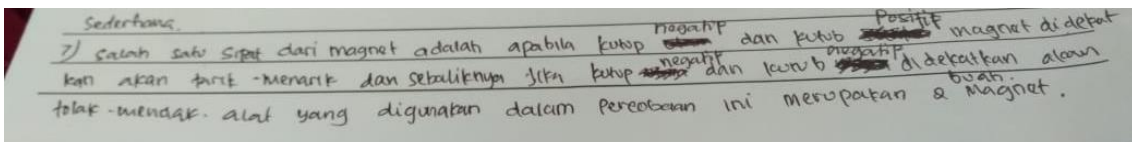 Sederhana.
7) Salah satu sipat dari magnet adalah apabila kutup negatip dan kutub Positip magnet di dekat
kan akan tarik-menarik dan sebaliknya jika kutup negatip dan kutub negatip didekatkan akan
tolak-menolak. alat yang digunakan dalam percobaan ini merupakan 2 buah. magnet.